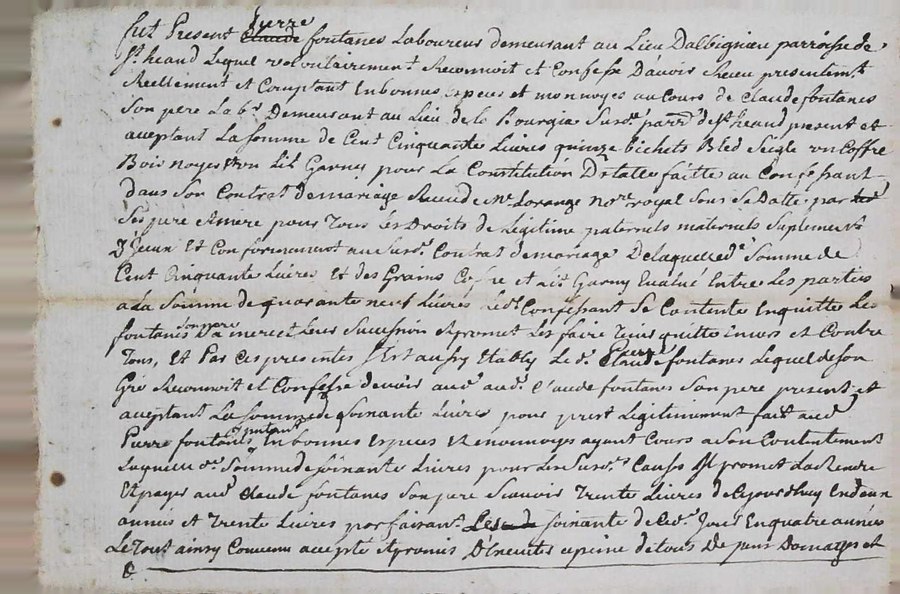 pierre
fut Present Claude fontanes Laboureur demeurant au Lieu Dalbignieu parroisse de
St. heand Lequel volontairement Reconnoit et Confesse Davoir Receu presentemt.
Reellement et Comptant En bonnes Especes et monnoyes au Cours de Claude fontanes
Son pere Labr. Demeurant au Lieu de la Bourgia Susd. parr. de St. heand present et
aceptant La Somme de Cent Cinquante Livres quinze bichets Bled Seigle un Coffre
Bois noyer Et un Lit Garny pour La Constitution Dotalle faitte au Confessant
dans Son Contrat de mariage Receu de Me. Lorange nore. royal Sous Sa Datte par
Ses pere et mere pour Tous Les Droits de Legitime paternels maternels Suplement
D'iceux Et Conformement au Susd. Contrat de mariage De laquelle de. Somme de
Cent Cinquante Livres Et des Grains Coffre et Lit Garny Evalué Entre Les parties
a La Somme de quarante neuf Livres Led. Confessant Se Contente En quitte Led.
fontanes Son pere Sa mere et Leur Sucession Et promet Les faire Tenir quitte Envers et Contre
Tous, Et Par Ces presentes S'Est aussy Etably Led. Claude pierre fontanes Lequel de Son
Gré Reconnoit et Confesse devoir aud. Claude fontanes Son pere present et
aceptant La Somme de Soixante Livres pour prest Legitimement fait aud.
Pierre fontanes En bonnes Especes et monnoyes ayant Cours a Son Contentement
Laquelle de. Somme de Soixante Livres pour Les Susd. Causes Il promet La Rendre
Et payer aud. Claude fontanes Son pere Scavoir Trente Livres de Ce jourdhuy En deux
années Et Trente Livres parfaisant Lesd. Soixante de Ced. Jour En quatre années
Le Tout ainsy Convenu accepté Et promis D'Executer a peine de tous Depens Domages et
&.